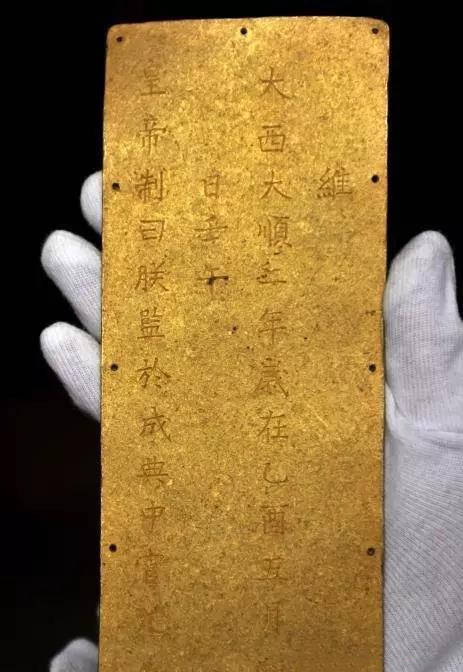 維
大西大順二年歲在乙酉五月
日壬午
皇帝制曰朕監於成典中宮